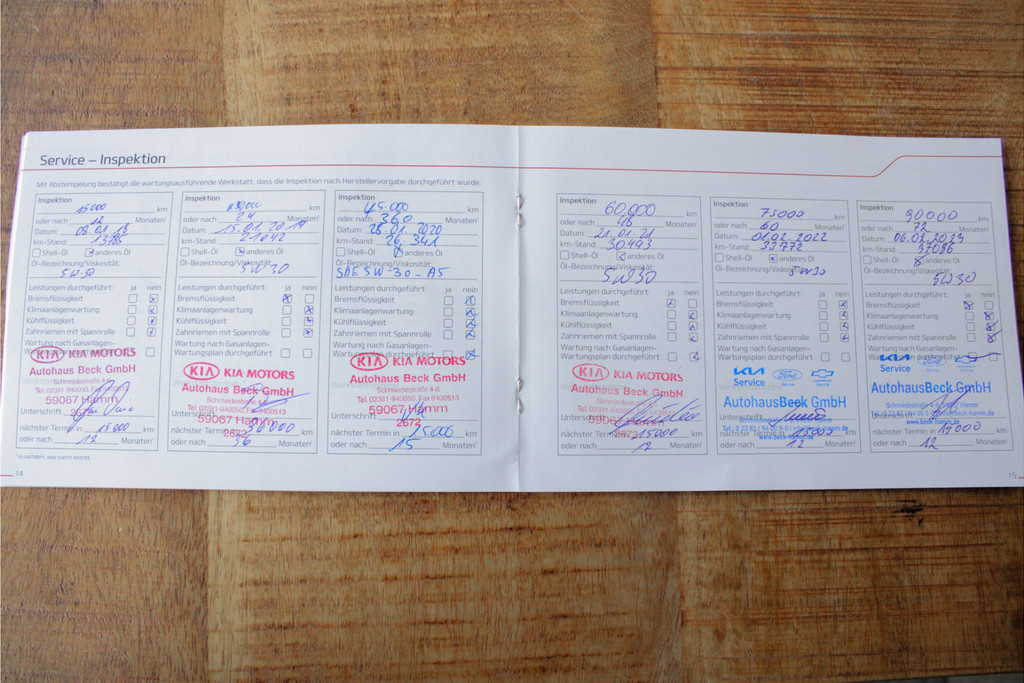 Service – Inspektion
Mit Abstempelung bestätigt die wartungsausführende Werkstatt, dass die Inspektion nach Herstellervorgabe durchgeführt wurde.
Inspektion
15000 km
oder nach 12 Monaten¹
Datum:
km-Stand:
Shell-Öl anderes Öl
Öl-Bezeichnung/Viskosität:
5W30
Leistungen durchgeführt: ja nein
Bremsflüssigkeit
Klimaanlagenwartung
Kühlflüssigkeit
Zahnriemen mit Spannrolle
Wartung nach Gasanlagen-
KIA KIA MOTORS
Autohaus Beck GmbH
Schmiedestraße 4-6
59067 Hamm
2672
Unterschrift
nächster Termin in 15000 km
oder nach 12 Monaten¹
¹ je nachdem, was zuerst eintritt
14
Inspektion
30,000 km
oder nach 24 Monaten¹
Datum: 15.01.2019
km-Stand: 21042
Shell-Öl anderes Öl
Öl-Bezeichnung/Viskosität:
5W30
Leistungen durchgeführt: ja nein
Bremsflüssigkeit
Klimaanlagenwartung
Kühlflüssigkeit
Zahnriemen mit Spannrolle
Wartung nach Gasanlagen-
Wartungsplan durchgeführt
KIA KIA MOTORS
Autohaus Beck GmbH
Schmiedestraße 4-6
Tel. 02381-940050, Fax 9400513
59067 Hamm
2672
Unterschrift
nächster Termin in km
oder nach Monaten¹
Inspektion
45.000 km
oder nach 360 Monaten¹
Datum: 28.01.2020
km-Stand: 26.341
Shell-Öl anderes Öl
Öl-Bezeichnung/Viskosität:
SAE 5W-30-A5
Leistungen durchgeführt: ja nein
Bremsflüssigkeit
Klimaanlagenwartung
Kühlflüssigkeit
Zahnriemen mit Spannrolle
Wartung nach Gasanlagen-
Wartungsplan durchgeführt
KIA KIA MOTORS
Autohaus Beck GmbH
Schmiedestraße 4-6
Tel. 02381-940050, Fax 9400513
59067 Hamm
2672
Unterschrift
nächster Termin in 15.000 km
oder nach 15 Monaten¹
Inspektion
60,000 km
oder nach 48 Monaten¹
Datum: 21.01.21
km-Stand: 30493
Shell-Öl anderes Öl
Öl-Bezeichnung/Viskosität:
5W30
Leistungen durchgeführt: ja nein
Bremsflüssigkeit
Klimaanlagenwartung
Kühlflüssigkeit
Zahnriemen mit Spannrolle
Wartung nach Gasanlagen-
Wartungsplan durchgeführt
KIA KIA MOTORS
Autohaus Beck GmbH
Schmiedestraße 4-6
2672
nächster Termin in 15000 km
oder nach Monaten¹
Inspektion
75000 km
oder nach 60 Monaten¹
Datum: 01.02.2022
km-Stand: 32773
Shell-Öl anderes Öl
Öl-Bezeichnung/Viskosität:
5W30
Leistungen durchgeführt: ja nein
Bremsflüssigkeit
Klimaanlagenwartung
Kühlflüssigkeit
Zahnriemen mit Spannrolle
Wartung nach Gasanlagen-
Wartungsplan durchgeführt
KIA Ford
Service
AutohausBeck GmbH
www.beck-hamm.de
nächster Termin in 15000 km
oder nach 12 Monaten¹
Inspektion
90000 km
oder nach 72 Monaten¹
Datum:
km-Stand: 37086
Shell-Öl anderes Öl
Öl-Bezeichnung/Viskosität:
5W30
Leistungen durchgeführt: ja nein
Bremsflüssigkeit
Klimaanlagenwartung
Kühlflüssigkeit
Zahnriemen mit Spannrolle
Wartung nach Gasanlagen-
KIA
Service
AutohausBeck GmbH
www.beck-hamm.de
nächster Termin in 15000 km
oder nach 12 Monaten¹
15